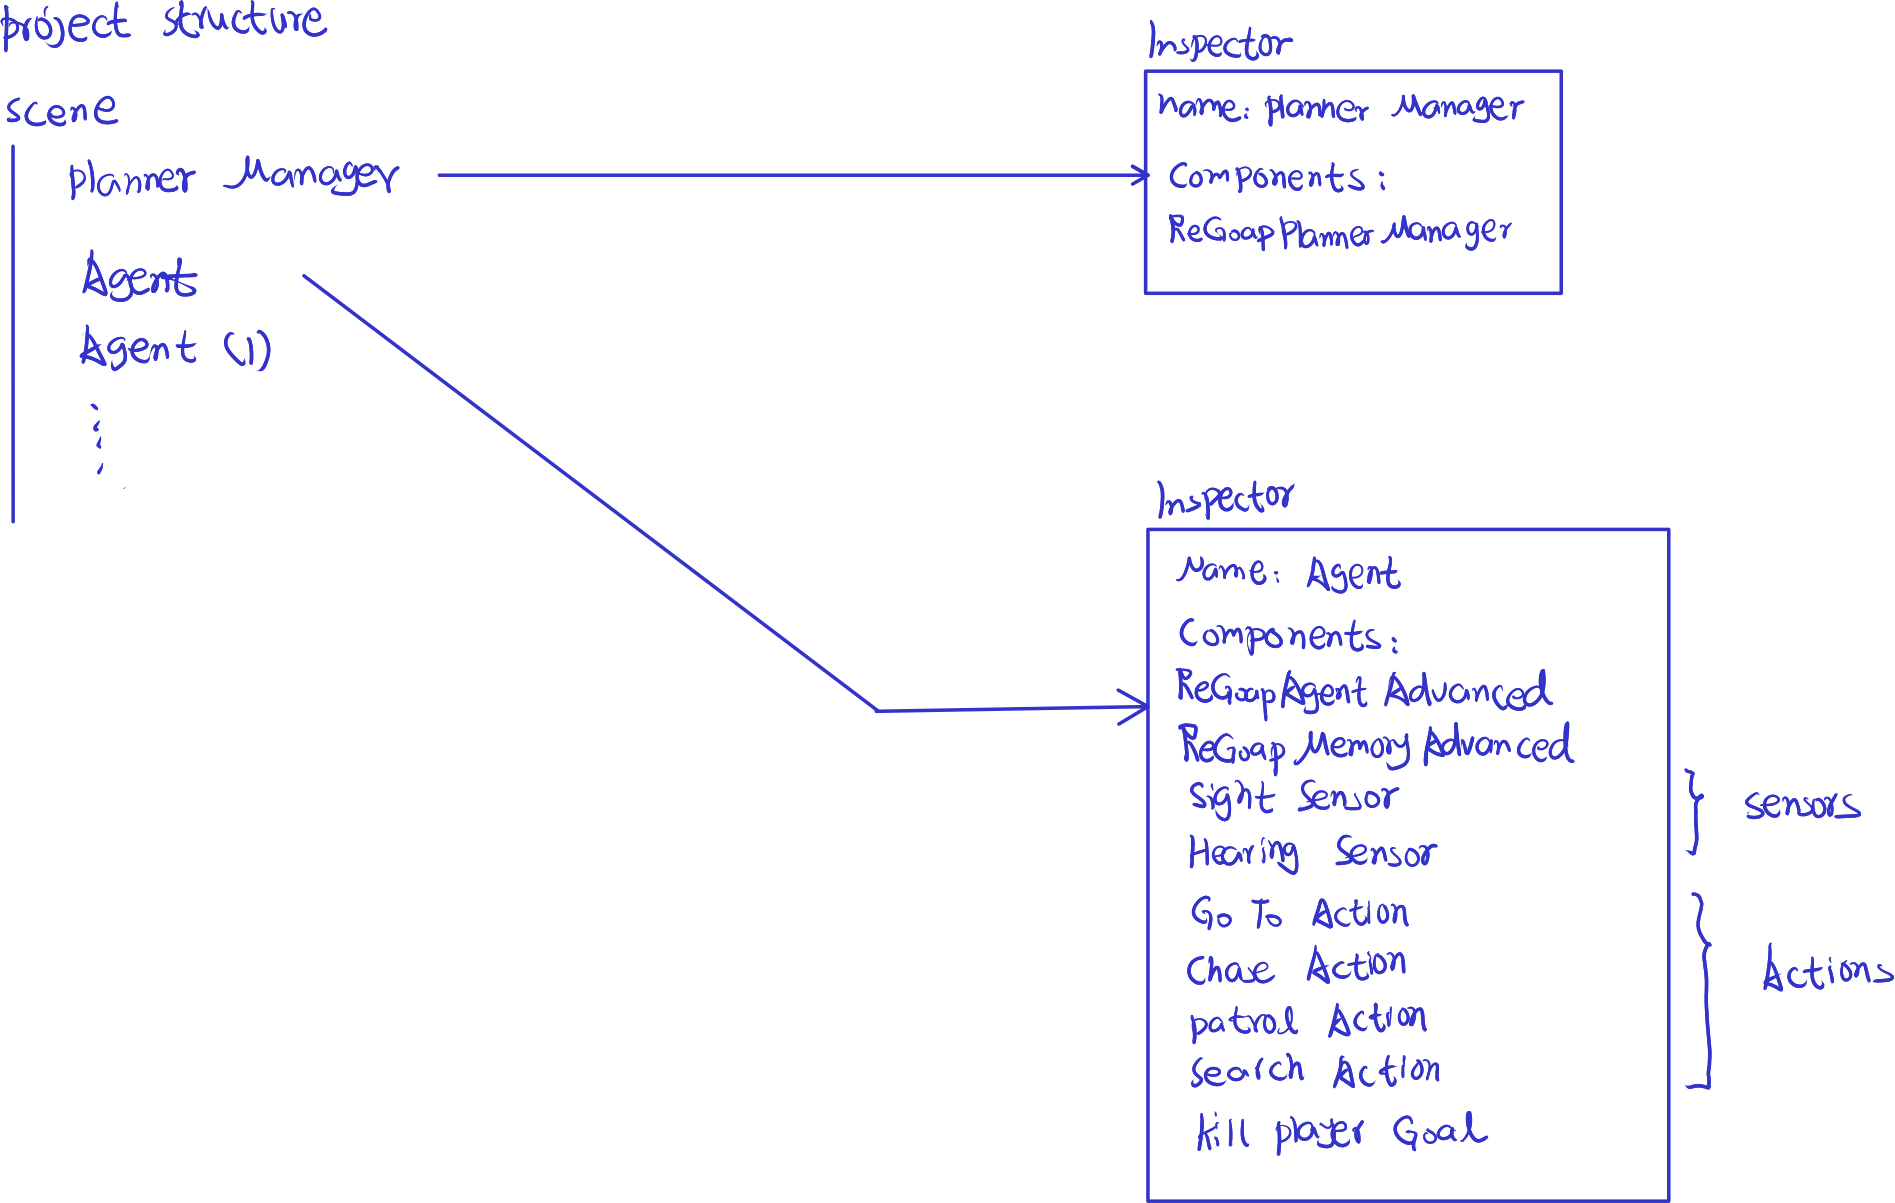 project structure
scene
planner Manager
Agent
Agent (1)
Inspector
name: planner Manager
Components:
ReGoapPlannerManager
Inspector
Name: Agent
Components:
ReGoapAgent Advanced
ReGoap Memory Advanced
Sight Sensor
Hearing Sensor
Go To Action
Chase Action
patrol Action
Search Action
kill player Goal
sensors
Actions